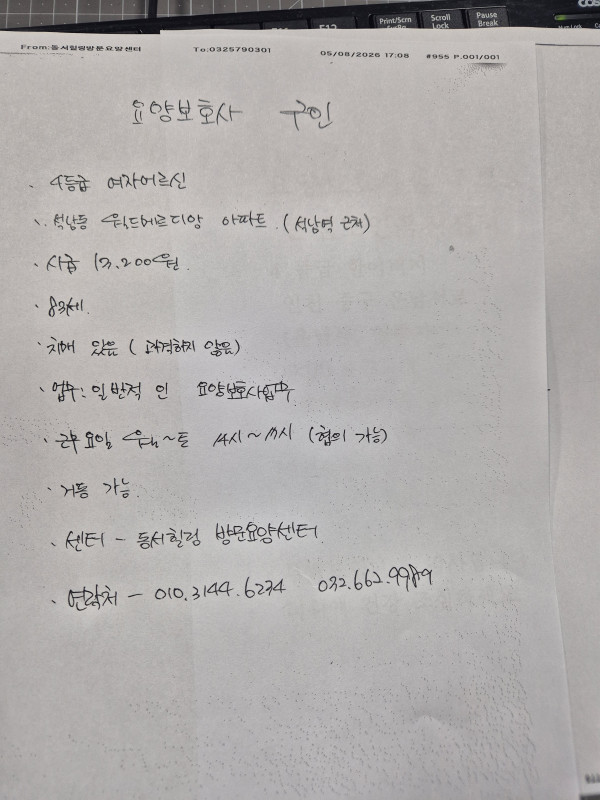 Print/Scrn
Scroll
Lock
Pause
Break
From:동서힐링방문요양센터 To:0325790301 05/08/2026 17:08 #955 P.001/001
요양보호사 구인
· 4등급 여자어르신
· 석남동 월드메르디앙 아파트. (석남역 근처)
· 시급 13.200원.
· 83세.
· 치매 있음 ( 과격하지 않음)
· 업무: 일반적 인 요양보호사업무
· 근무요일 월~토 14시~17시 (협의 가능)
· 거동 가능.
· 센터 - 동서힐링 방문요양센터
· 연락처 - 010.3144.6234 032.662.9989